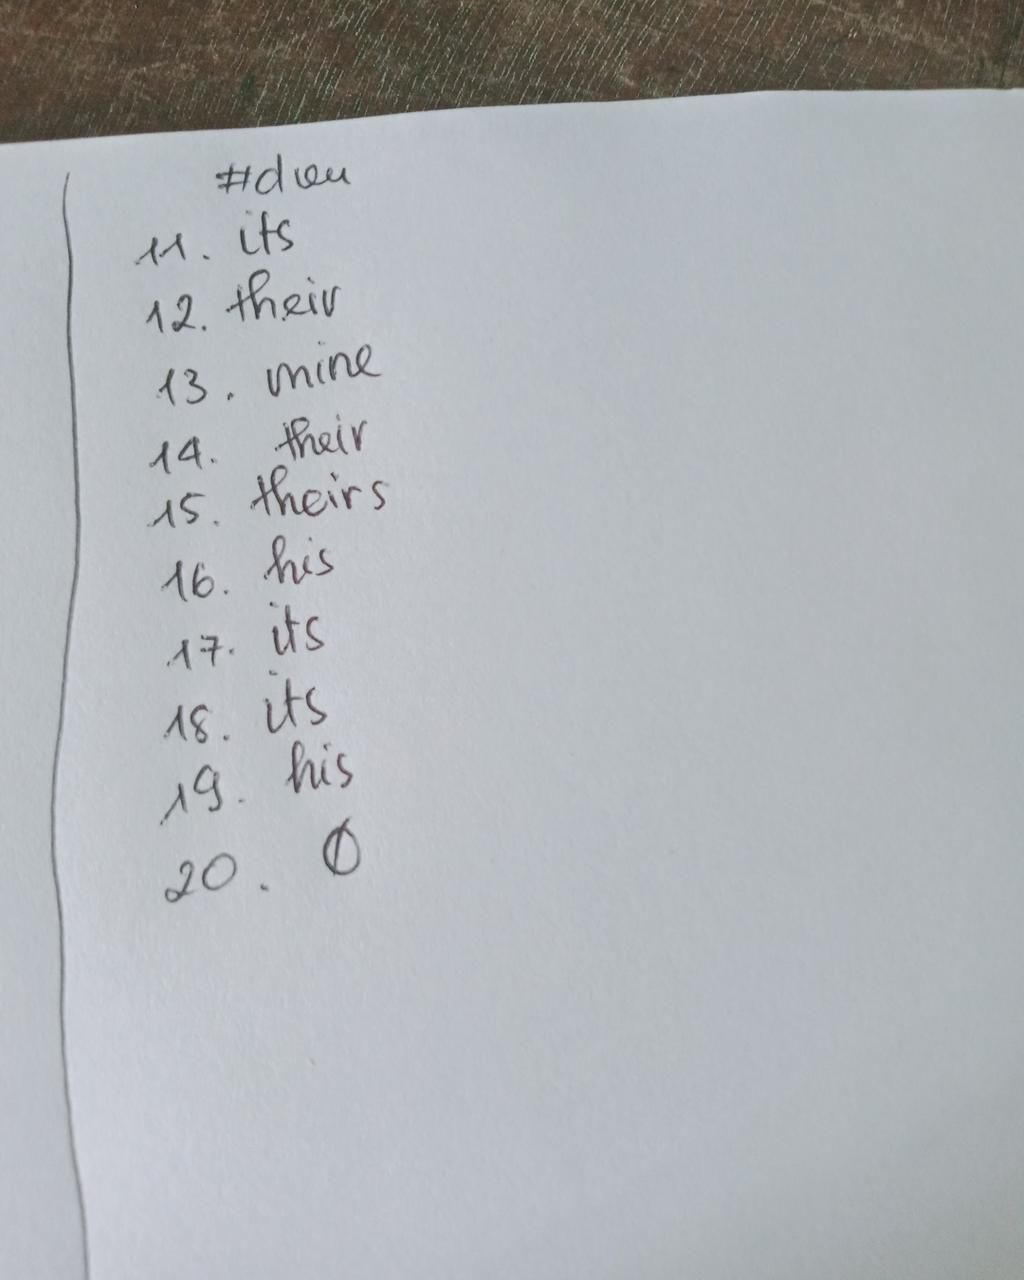 #dieu
11. its
12. their
13. mine
14. their
15. theirs
16. his
17. its
18. its
19. his
20. Ø